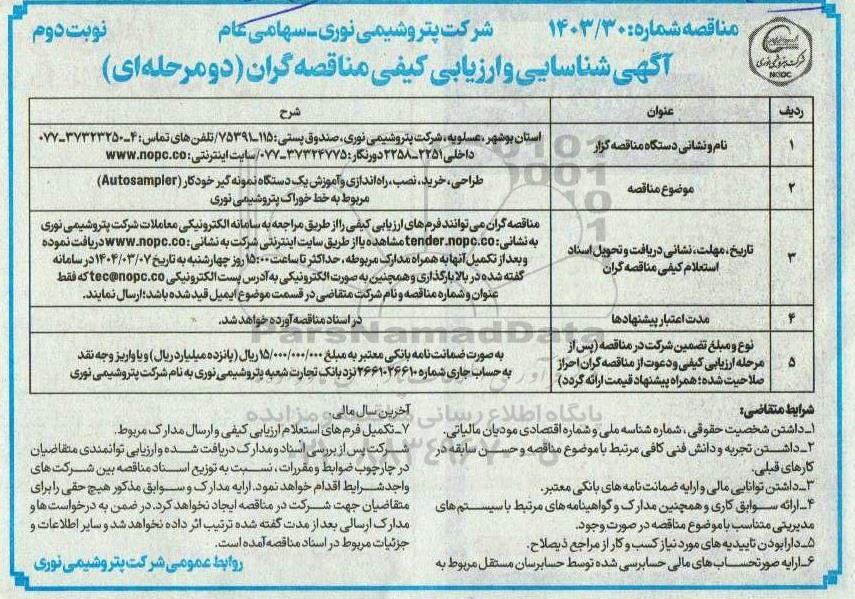 مناقصه شماره: ۱۴۰۳/۳۰
شرکت پتروشیمی نوری - سهامی عام
نوبت دوم
آگهی شناسایی و ارزیابی کیفی مناقصه گران (دو مرحله‌ای)
شرکت پتروشیمی نوری
NOPC
ردیف
عنوان
شرح
۱
نام و نشانی دستگاه مناقصه گزار
استان بوشهر، عسلویه، شرکت پتروشیمی نوری، صندوق پستی: ۱۱۵-۷۵۳۹۱/ تلفن های تماس: ۴-۳۷۳۲۳۲۵۰-۰۷۷
داخلی ۲۲۵۱-۲۲۵۸ دورنگار: ۳۷۳۲۴۷۷۵-۰۷۷/ سایت اینترنتی: www.nopc.co
۲
موضوع مناقصه
طراحی، خرید، نصب، راه اندازی و آموزش یک دستگاه نمونه گیر خودکار (Autosampler)
مربوط به خط خوراک پتروشیمی نوری
۳
تاریخ، مهلت، نشانی دریافت و تحویل اسناد
استعلام کیفی مناقصه گران
مناقصه گران می توانند فرم های ارزیابی کیفی را از طریق مراجعه به سامانه الکترونیکی معاملات شرکت پتروشیمی نوری
به نشانی: tender.nopc.co مشاهده یا از طریق سایت اینترنتی شرکت به نشانی: www.nopc.co دریافت نموده
و بعد از تکمیل آنها به همراه مدارک مربوطه، حداکثر تا ساعت ۱۵:۰۰ روز چهارشنبه به تاریخ ۱۴۰۴/۰۳/۰۷ در سامانه
گفته شده در بالا بارگذاری و همچنین به صورت الکترونیکی به آدرس پست الکترونیکی tec@nopc.co که فقط
عنوان و شماره مناقصه و نام شرکت متقاضی در قسمت موضوع ایمیل قید شده باشد؛ ارسال نمایند.
۴
مدت اعتبار پیشنهادها
در اسناد مناقصه آورده خواهد شد.
۵
نوع و مبلغ تضمین شرکت در مناقصه (پس از
مرحله ارزیابی کیفی و دعوت از مناقصه گران احراز
صلاحیت شده؛ همراه پیشنهاد قیمت ارائه گردد)
به صورت ضمانت نامه بانکی معتبر به مبلغ ۱۵/۰۰۰/۰۰۰/۰۰۰ ریال (پانزده میلیارد ریال) و یا واریز وجه نقد
به حساب جاری شماره ۲۶۶۱۰۲۶۶۱۰ نزد بانک تجارت شعبه پتروشیمی نوری به نام شرکت پتروشیمی نوری
ParsNamadData
پایگاه اطلاع رسانی مناقصه و مزایده
شرایط متقاضی:
۱-داشتن شخصیت حقوقی، شماره شناسه ملی و شماره اقتصادی مودیان مالیاتی.
۲-داشتن تجربه و دانش فنی کافی مرتبط با موضوع مناقصه و حسن سابقه در
کارهای قبلی.
۳-داشتن توانایی مالی و ارایه ضمانت نامه های بانکی معتبر.
۴-ارائه سوابق کاری و همچنین مدارک و گواهینامه های مرتبط با سیستم های
مدیریتی متناسب با موضوع مناقصه در صورت وجود.
۵-دارا بودن تاییدیه های مورد نیاز کسب و کار از مراجع ذیصلاح.
۶-ارایه صورتحساب های مالی حسابرسی شده توسط حسابرسان مستقل مربوط به
آخرین سال مالی
۷-تکمیل فرم های استعلام ارزیابی کیفی و ارسال مدارک مربوط.
شرکت پس از بررسی اسناد و مدارک دریافت شده و ارزیابی توانمندی متقاضیان
در چارچوب ضوابط و مقررات، نسبت به توزیع اسناد مناقصه بین شرکت های
واجد شرایط اقدام خواهد نمود. ارایه مدارک و سوابق مذکور هیچ حقی را برای
متقاضیان جهت شرکت در مناقصه ایجاد نخواهد کرد. در ضمن به درخواست ها و
مدارک ارسالی بعد از مدت گفته شده ترتیب اثر داده نخواهد شد و سایر اطلاعات و
جزئیات مربوط در اسناد مناقصه آمده است.
روابط عمومی شرکت پتروشیمی نوری